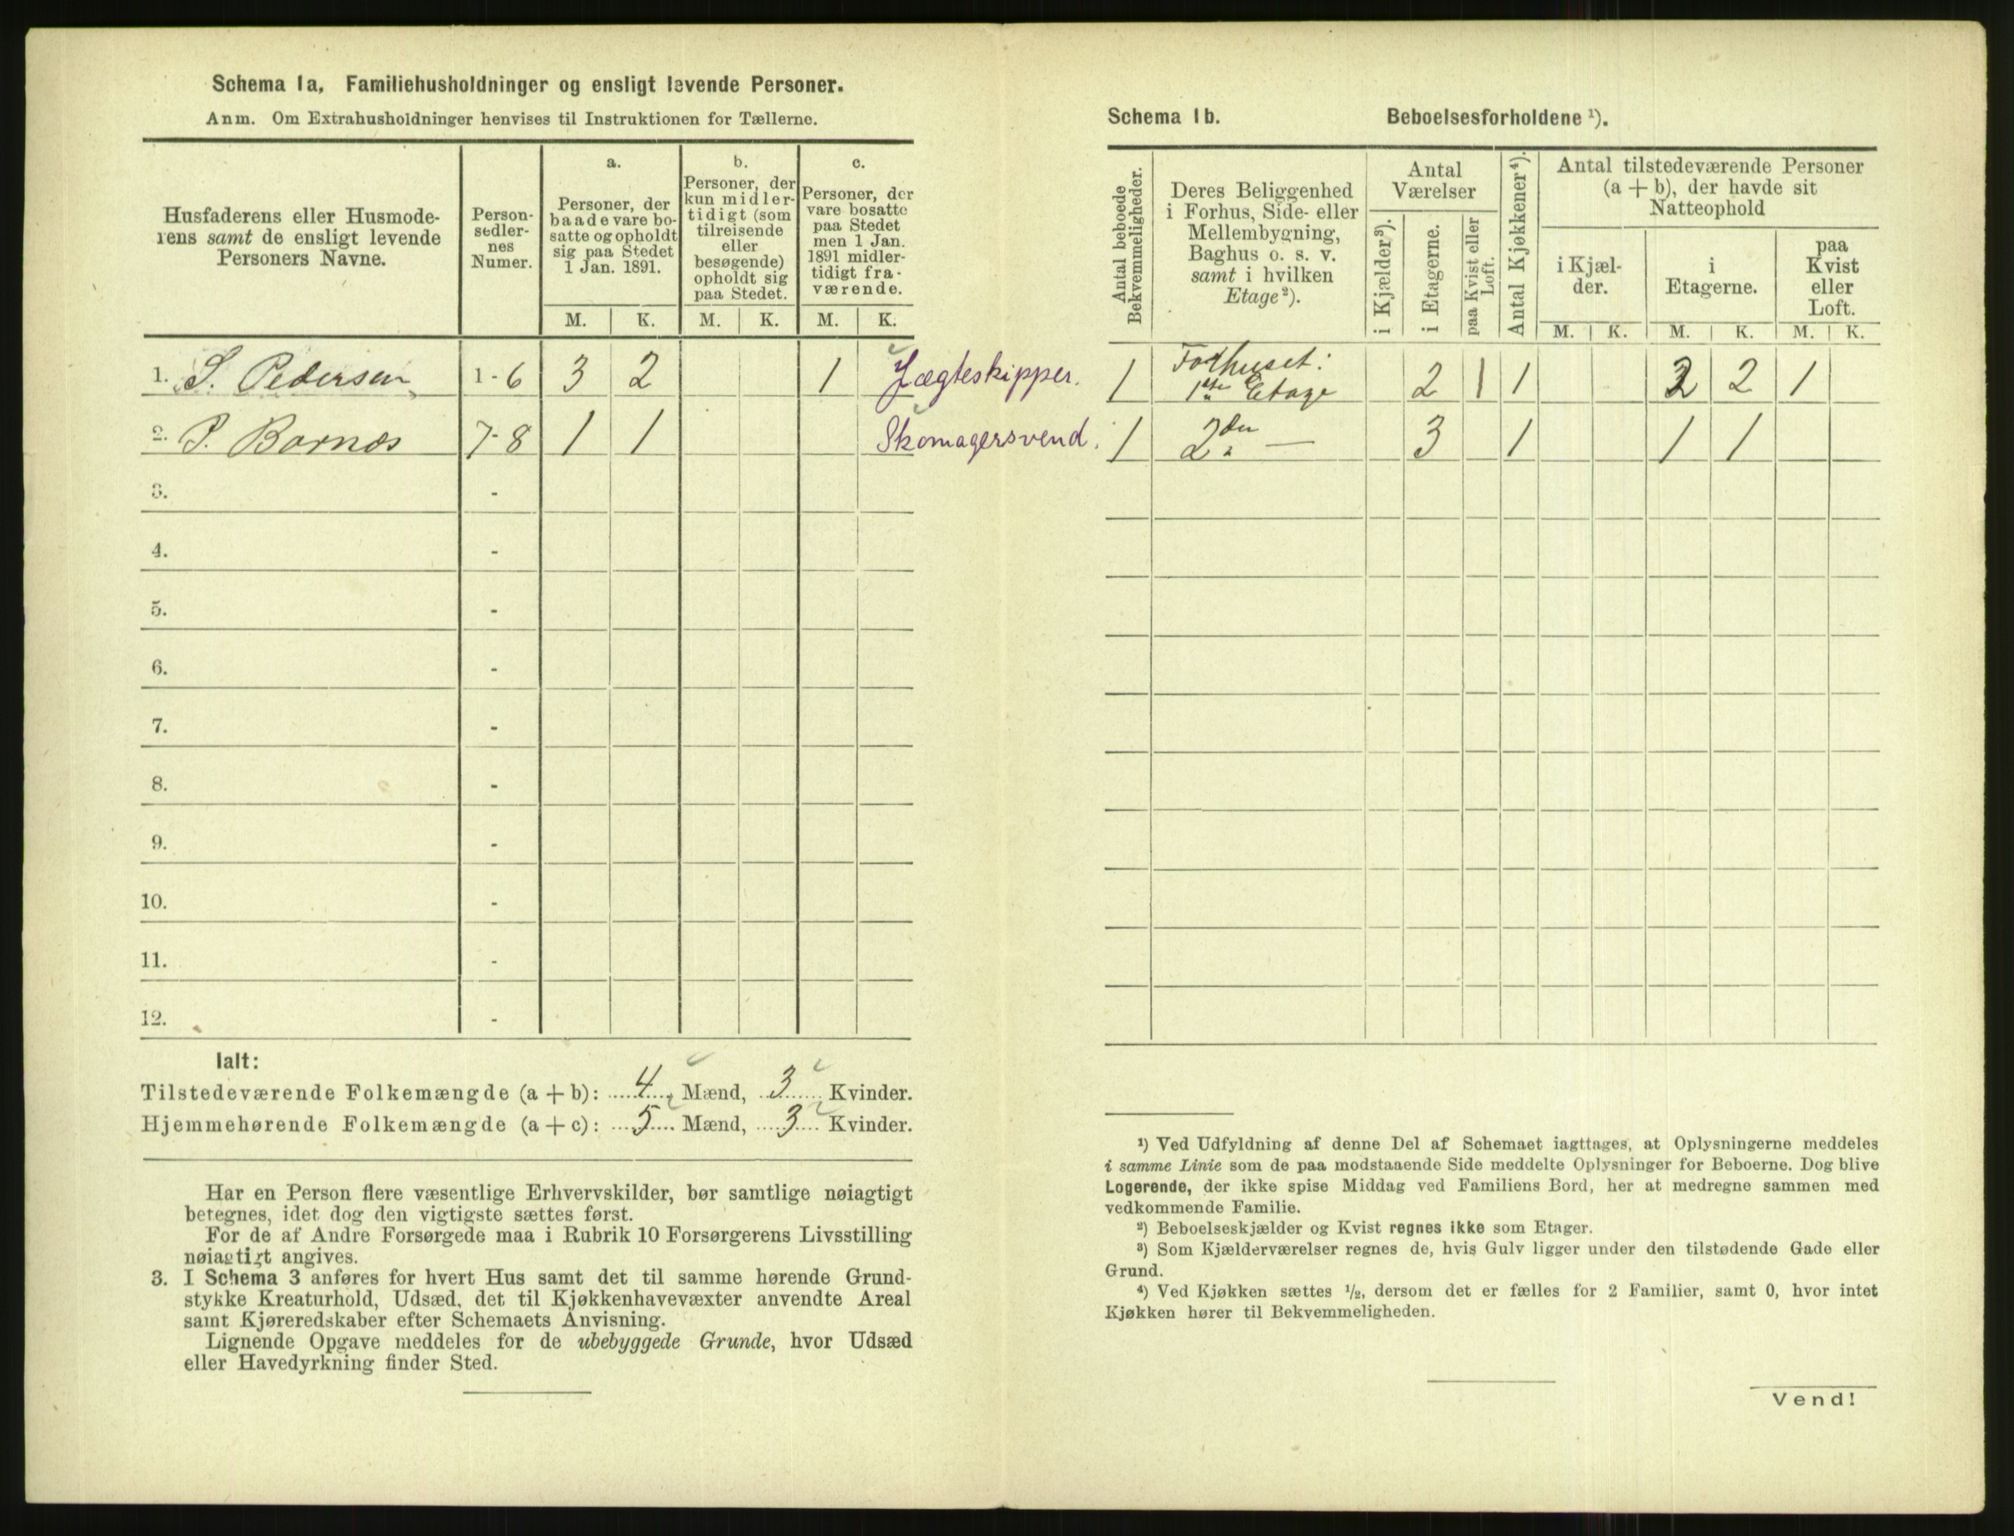 Schema 1a. Familiehusholdninger og ensligt levende Personer.
Anm. Om Extrahusholdninger henvises til Instruktionen for Tællerne.
Husfaderens eller Husmode-
rens samt de ensligt levende
Personers Navne.
Person-
sedler-
nes
Numer.
a.
Personer, der
baade vare bo-
satte og opholdt
sig paa Stedet
1 Jan. 1891.
b.
Personer, der
kun midler-
tidigt (som
tilreisende
eller
besøgende)
opholdt sig
paa Stedet.
c.
Personer, der
vare bosatte
paa Stedet
men 1 Jan.
1891 midler-
tidigt fra-
værende.
M. K. M. K. M. K.
1. S. Pedersen 1-6 3 2 1 Jægteskipper.
2. P. Bornæs 7-8 1 1 Skomagersvend.
3. -
4. -
5. -
6. -
7. -
8. -
9. -
10. -
11. -
12. -
Ialt:
Tilstedeværende Folkemængde (a + b): 4 Mænd, 3 Kvinder.
Hjemmehørende Folkemængde (a + c): 5 Mænd, 3 Kvinder.
Har en Person flere væsentlige Erhvervskilder, bør samtlige nøiagtigt
betegnes, idet dog den vigtigste sættes først.
For de af Andre Forsørgede maa i Rubrik 10 Forsørgerens Livsstilling
nøiagtigt angives.
3. I Schema 3 anføres for hvert Hus samt det til samme hørende Grund-
stykke Kreaturhold, Udsæd, det til Kjøkkenhavevæxter anvendte Areal
samt Kjøreredskaber efter Schemaets Anvisning.
Lignende Opgave meddeles for de ubebyggede Grunde, hvor Udsæd
eller Havedyrkning finder Sted.
Schema 1b. Beboelsesforholdene ¹).
Antal beboede
Bekvemmeligheder.
Deres Beliggenhed
i Forhus, Side- eller
Mellembygning,
Baghus o. s. v.
samt i hvilken
Etage²).
Antal
Værelser
i Kjælder³).
i Etagerne.
paa Kvist eller
Loft.
Antal Kjøkkener⁴).
Antal tilstedeværende Personer
(a + b), der havde sit
Natteophold
i Kjæl-
der.
i
Etagerne.
paa
Kvist
eller
Loft.
M. K. M. K. M. K.
1 Forhuset:
1ste Etage 2 1 1 2 2 1
1 2den — 3 1 1 1
¹) Ved Udfyldning af denne Del af Schemaet iagttages, at Oplysningerne meddeles
i samme Linie som de paa modstaaende Side meddelte Oplysninger for Beboerne. Dog blive
Logerende, der ikke spise Middag ved Familiens Bord, her at medregne sammen med
vedkommende Familie.
²) Beboelseskjælder og Kvist regnes ikke som Etager.
³) Som Kjælderværelser regnes de, hvis Gulv ligger under den tilstødende Gade eller
Grund.
⁴) Ved Kjøkken sættes ½, dersom det er fælles for 2 Familier, samt 0, hvor intet
Kjøkken hører til Bekvemmeligheden.
Vend!